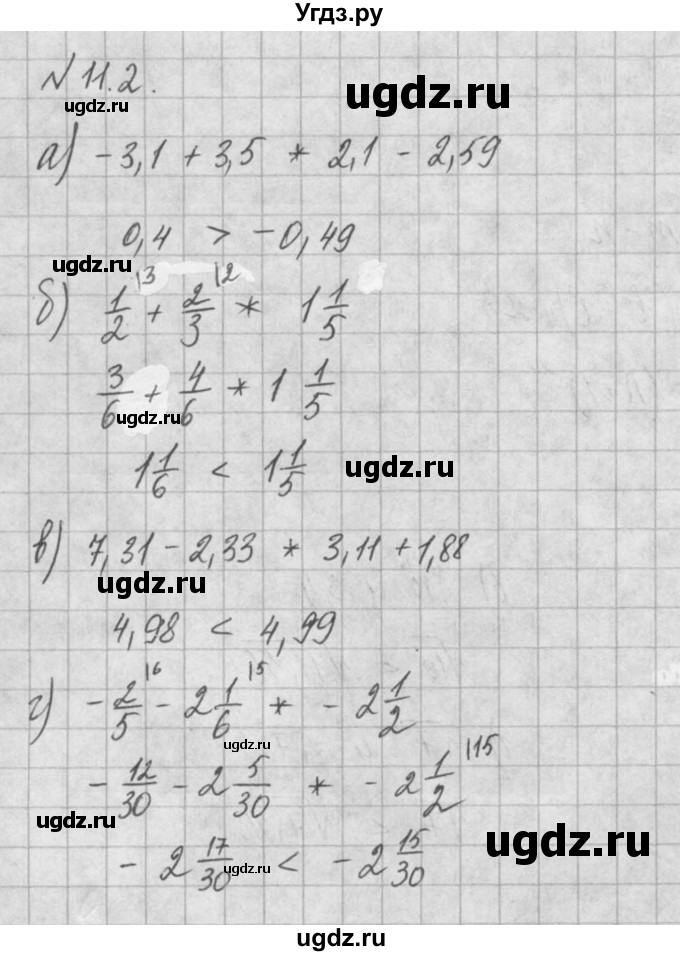 Угдз.ру
№ 11.2.
ugdz.ru
ugdz.ru
а) - 3,1 + 3,5 * 2,1 - 2,59
0,4 > - 0,49
ugdz.ru
б) 1/2 |3 + 2/3 |2 * 1 1/5
3/6 + 4/6 * 1 1/5
ugdz.ru
1 1/6 < 1 1/5
ugdz.ru
в) 7,31 - 2,33 * 3,11 + 1,88
ugdz.ru
4,98 < 4,99
г) - 2/5 |6 - 2 1/6 |5 * - 2 1/2
ugdz.ru
- 12/30 - 2 5/30 * - 2 1/2 |15
ugdz.ru
ugdz.ru
- 2 17/30 < - 2 15/30
ugdz.ru
ugdz.ru